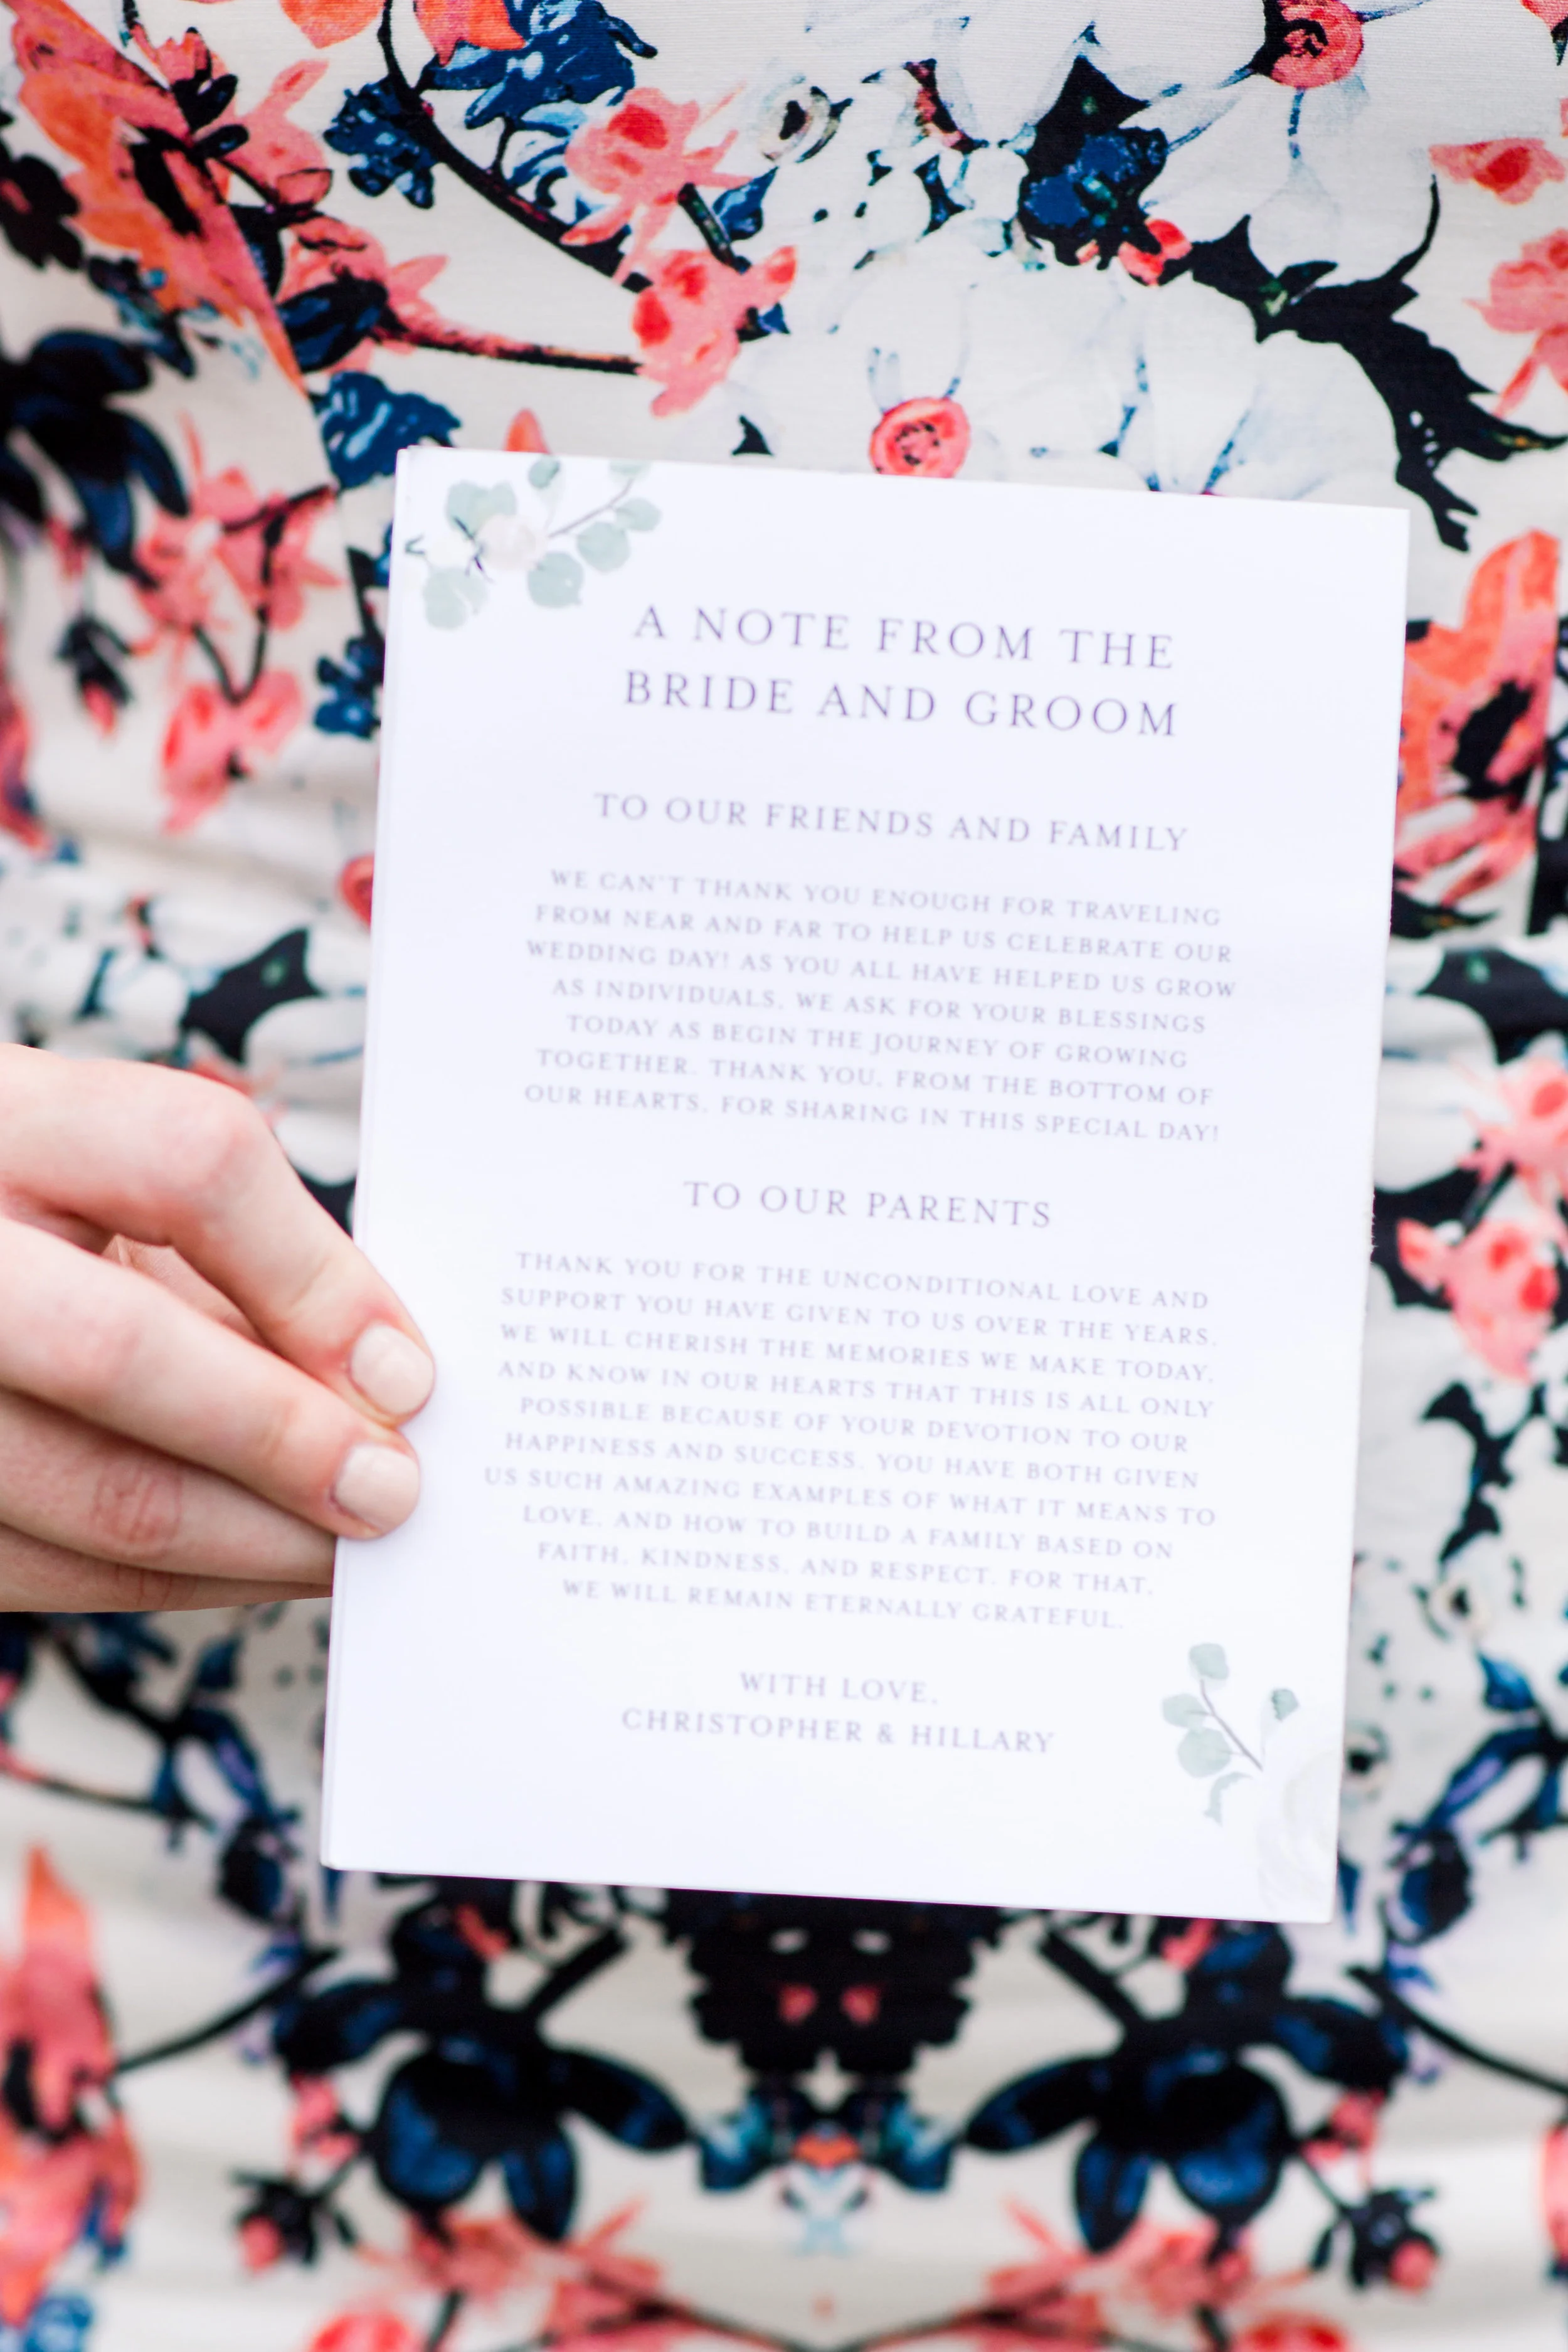 A NOTE FROM THE
BRIDE AND GROOM
TO OUR FRIENDS AND FAMILY
WE CAN'T THANK YOU ENOUGH FOR TRAVELING
FROM NEAR AND FAR TO HELP US CELEBRATE OUR
WEDDING DAY! AS YOU ALL HAVE HELPED US GROW
AS INDIVIDUALS, WE ASK FOR YOUR BLESSINGS
TODAY AS BEGIN THE JOURNEY OF GROWING
TOGETHER. THANK YOU, FROM THE BOTTOM OF
OUR HEARTS, FOR SHARING IN THIS SPECIAL DAY!
TO OUR PARENTS
THANK YOU FOR THE UNCONDITIONAL LOVE AND
SUPPORT YOU HAVE GIVEN TO US OVER THE YEARS.
WE WILL CHERISH THE MEMORIES WE MAKE TODAY,
AND KNOW IN OUR HEARTS THAT THIS IS ALL ONLY
POSSIBLE BECAUSE OF YOUR DEVOTION TO OUR
HAPPINESS AND SUCCESS. YOU HAVE BOTH GIVEN
US SUCH AMAZING EXAMPLES OF WHAT IT MEANS TO
LOVE, AND HOW TO BUILD A FAMILY BASED ON
FAITH, KINDNESS, AND RESPECT. FOR THAT,
WE WILL REMAIN ETERNALLY GRATEFUL.
WITH LOVE,
CHRISTOPHER & HILLARY